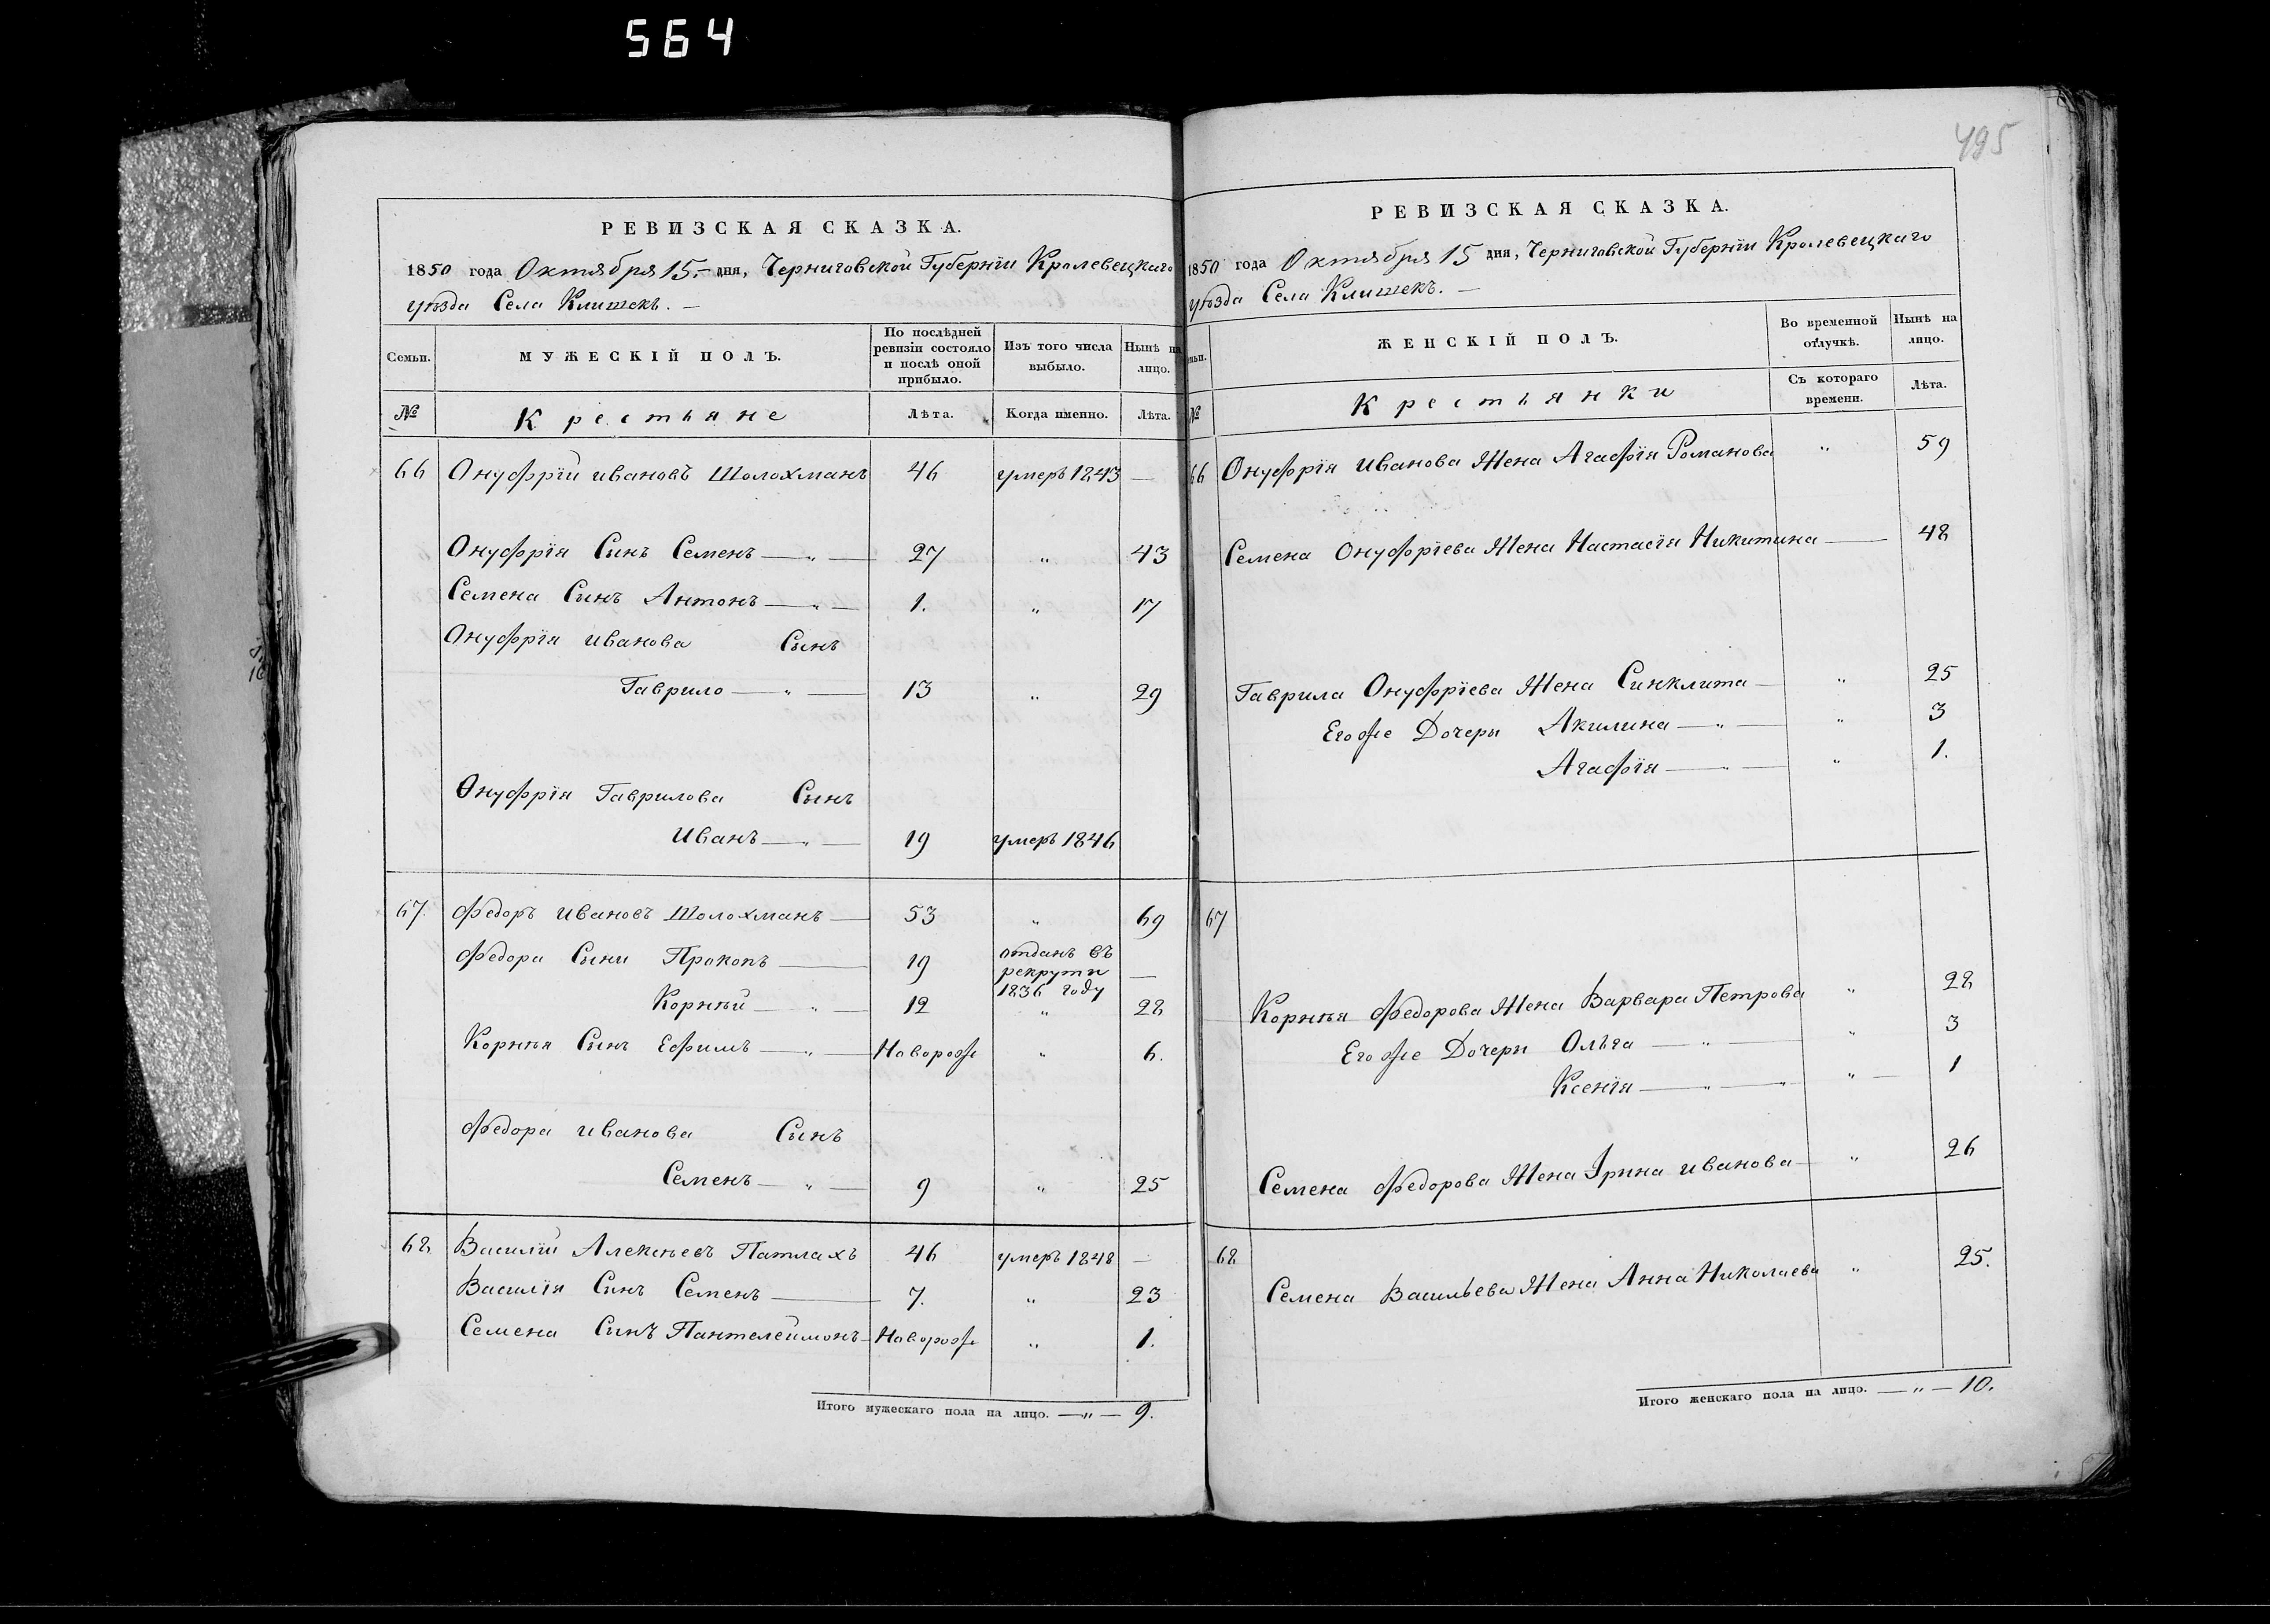 564
495
РЕВИЗСКАЯ СКАЗКА.
1850 года Октября 15 дня, Черниговской Губернїи Кролевецкаго
уѣзда Села Клишекъ. —
Семьи. МУЖЕСКІЙ ПОЛЪ. По послѣдней ревизіи состояло и послѣ оной прибыло. Изъ того числа выбыло. Нынѣ на лицо.
№ Крестьяне Лѣта. Когда именно. Лѣта.
66 Онуфрїй Ивановъ Шолохманъ 46 умеръ 1843 —
Онуфрїя Сынъ Семенъ — „ — 27 „ 43
Семена Сынъ Антонъ — „ — 1. „ 17
Онуфрїя Иванова Сынъ
Гаврило — „ — 13 „ 29
Онуфрїя Гаврилова Сынъ
Иванъ — „ — 19 умеръ 1846
67. Федоръ Ивановъ Шолохманъ — 53 „ 69
Федора Сыны Прокопъ — 19 отданъ въ рекруты 1836 году —
Корнѣй — „ — 12 „ 28
Корнѣя Сынъ Ефимъ — „ — Новорож „ 6.
Федора Иванова Сынъ
Семенъ — „ — 9 „ 25
68 Василїй Алексѣевъ Патлахъ 46 умеръ 1848 —
Василїя Сынъ Семенъ — 7. „ 23
Семена Сынъ Пантелеймонъ — Новорож „ 1.
Итого мужескаго пола на лицо. — „ — 9.
РЕВИЗСКАЯ СКАЗКА.
1850 года Октября 15 дня, Черниговской Губернїи Кролевецкаго
уѣзда Села Клишекъ. —
ЖЕНСКІЙ ПОЛЪ. Во временной отлучкѣ. Нынѣ на лицо.
№ Крестьянки Съ котораго времени. Лѣта.
66 Онуфрїя Иванова Жена Агафїя Романова „ 59
Семена Онуфрїева Жена Настасїя Никитина — 48
Гаврила Онуфрїева Жена Синклита — „ 25
Егоже Дочери Акилина — „ — „ 3
Агафїя — „ — „ 1.
67
Корнѣя Федорова Жена Варвара Петрова „ 28
Егоже Дочери Ольга — „ — „ 3
Ксенїя — „ — „ — 1
Семена Федорова Жена Ірина Иванова — „ 26
68
Семена Васильева Жена Анна Николаева „ 25.
Итого женскаго пола на лицо. — „ — 10.